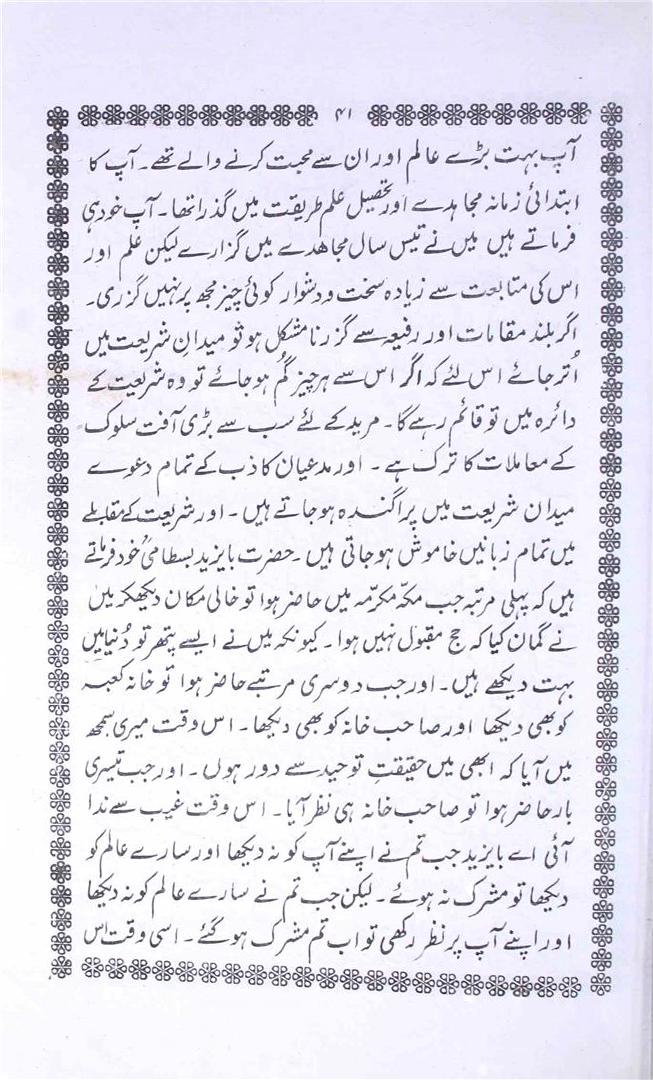 ۴۱
آپ بہت بڑے عالم اور ان سے محبت کرنے والے تھے۔ آپ کا
ابتدائی زمانہ مجاہدے اور تحصیل علم طریقت میں گذرا تھا۔ آپ خود ہی
فرماتے ہیں میں نے تیس سال مجاھدے میں گزارے لیکن علم اور
اس کی متابعت سے زیادہ سخت و دشوار کوئی چیز مجھ پر نہیں گزری۔
اگر بلند مقامات اور رفیعہ سے گزرنا مشکل ہو تو میدانِ شریعت میں
اُتر جائے اس لئے کہ اگر اس سے ہر چیز گُم ہو جائے تو وہ شریعت کے
دائرہ میں تو قائم رہے گا۔ مرید کے لئے سب سے بڑی آفت سلوک
کے معاملات کا ترک ہے۔ اور مدعیان کاذب کے تمام دعوے
میدان شریعت میں پراگندہ ہو جاتے ہیں۔ اور شریعت کے مقابلے
میں تمام زبانیں خاموش ہو جاتی ہیں۔ حضرت بایزید بسطامیؒ خود فرماتے
ہیں کہ پہلی مرتبہ جب مکّہ مکرّمہ میں حاضر ہوا تو خالی مکان دیکھکر میں
نے گمان کیا کہ حج مقبول نہیں ہوا۔ کیونکہ میں نے ایسے پتھر تو دُنیا میں
بہت دیکھے ہیں۔ اور جب دوسری مرتبے حاضر ہوا تو خانہ کعبہ
کو بھی دیکھا اور صاحب خانہ کو بھی دیکھا۔ اس وقت میری سمجھ
میں آیا کہ ابھی میں حقیقتِ توحید سے دور ہوں۔ اور جب تیسری
بار حاضر ہوا تو صاحب خانہ ہی نظر آیا۔ اس وقت غیب سے ندا
آئی اے بایزید جب تم نے اپنے آپ کو نہ دیکھا اور سارے عالم کو
دیکھا تو مشرک نہ ہوئے۔ لیکن جب تم نے سارے عالم کو نہ دیکھا
اور اپنے آپ پر نظر رکھی تو اب تم مشرک ہو گئے۔ اسی وقت اس